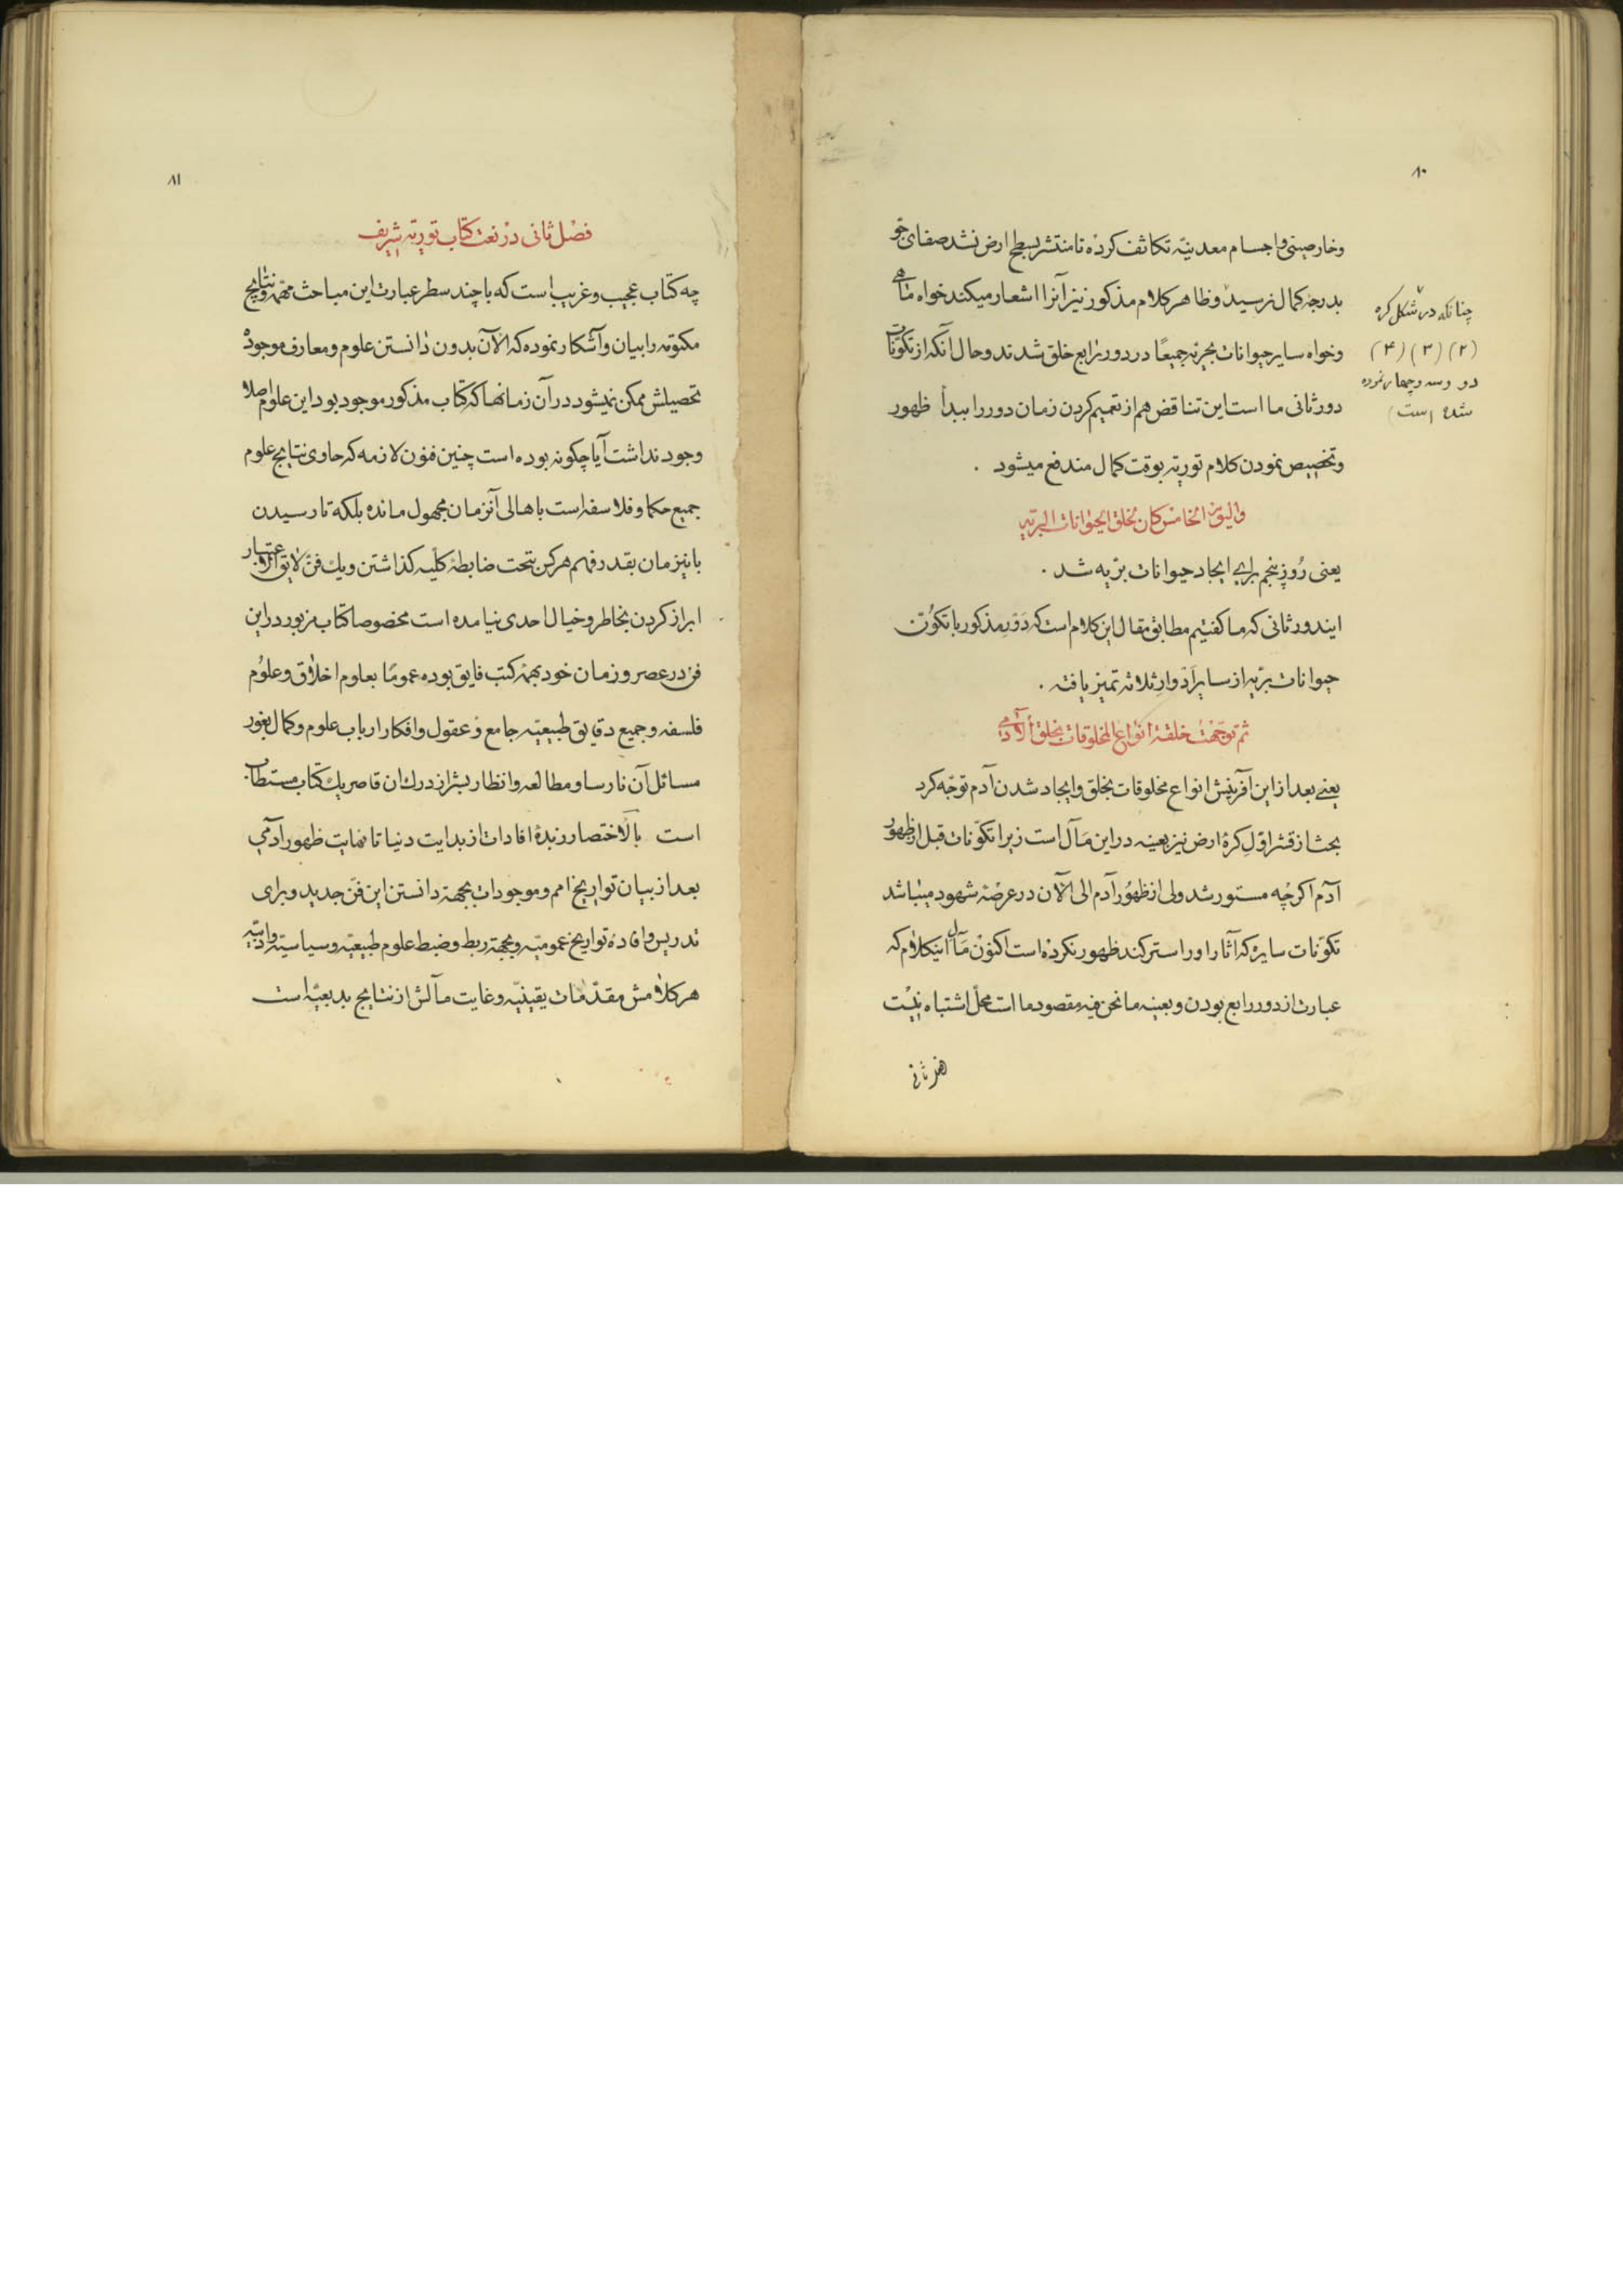 ۸۰
وخارصینی واجسام معدنیّه تکاثف کرده تا منتشر بسطح ارض نشد صفای جوّ
بدرجهٔ کمال نرسید وظاهر کلام مذکور نیز آنرا اشعار میکند خواه ماهی
وخواه سایر حیوانات بحریّه جمیعًا در دور رابع خلق شدند وحال آنکه از تکوّنات
دور ثانی ما است این تناقض هم از تعمیم کردن زمان دور را بمبدأ ظهور
وتخصیص نمودن کلام توریة بوقت کمال مندفع میشود .
چنانکه در شکل کره
(۲) (۳) (۴)
دو وسه وچهار نموده
شده است
والیوم الخامس کان لخلق الحیوانات البریّه
یعنی روز پنجم برای ایجاد حیوانات برّیه شد .
ایندور ثانی که ما گفتیم مطابق مقال این کلام است که دَوْر مذکور با تکوّن
حیوانات برّیه از سایر اَدْوارِ ثلاثه تمیز یافته .
ثم توجّهت خلقة انواع المخلوقات بخلق الآدمی
یعنی بعد از این آفرینش انواع مخلوقات بخلق وایجاد شدن آدم توجّه کرد
بحث از قشر اوّل کرهٔ ارض نیز بعینه در این مَآل است زیرا تکوّنات قبل از ظهور
آدم اگرچه مستور شد ولی از ظهور آدم الی الآن در عرصهٔ شهود میباشد
تکوّنات سایره که آثار او را ستر کند ظهور نکرده است اکنون مَآل اینکلام که
عبارت از دور رابع بودن وبعینه ما نحن فیه مقصود ما است محلّ اشتباه نیست
۸۱
فصل ثانی در نعت کتاب توریة شریف
چه کتاب عجیب وغریب است که با چند سطر عبارت این مباحث مهمّه ونتایج
مکتومه را بیان وآشکار نموده که الآن بدون دانستن علوم ومعارف موجوده
تحصیلش ممکن نمیشود در آن زمانها که کتاب مذکور موجود بود این علوم اصلا
وجود نداشت آیا چگونه بوده است چنین فنون لازمه که حاوی نتایج علوم
جمیع حکما وفلاسفه است باهالی آنزمان مجهول مانده بلکه تا رسیدن
باینزمان بقدر فهم هرکس بتحت ضابطهٔ کلّیه گذاشتن ویك فنّ لایق اعتبار
ابراز کردن بخاطر وخیال احدی نیامده است مخصوصا کتاب مزبور در این
فن در عصر وزمان خود بهمهٔ کتب فایق بوده عمومًا بعلوم اخلاق وعلوم
فلسفه وجمیع دقایق طبیعیّه جامع وعقول وافکار ارباب علوم وکمال بغور
مسائل آن نارسا ومطالعه وانظار بشر از درك ان قاصر یك کتاب مستطاب
است بالاختصار زبدهٔ افادات از بدایت دنیا تا نهایت ظهور آدمی
بعد از بیان تواریخ امم وموجودات بجهة دانستن این فنّ جدید وبرای
تدریس وافادهٔ تواریخ عمومیّه وبجهة ربط وضبط علوم طبیعیّه وسیاسیّه وادبیّه
هر کلامش مقدّمات یقینیّه وغایت مآلش از نتایج بدیعیّه است